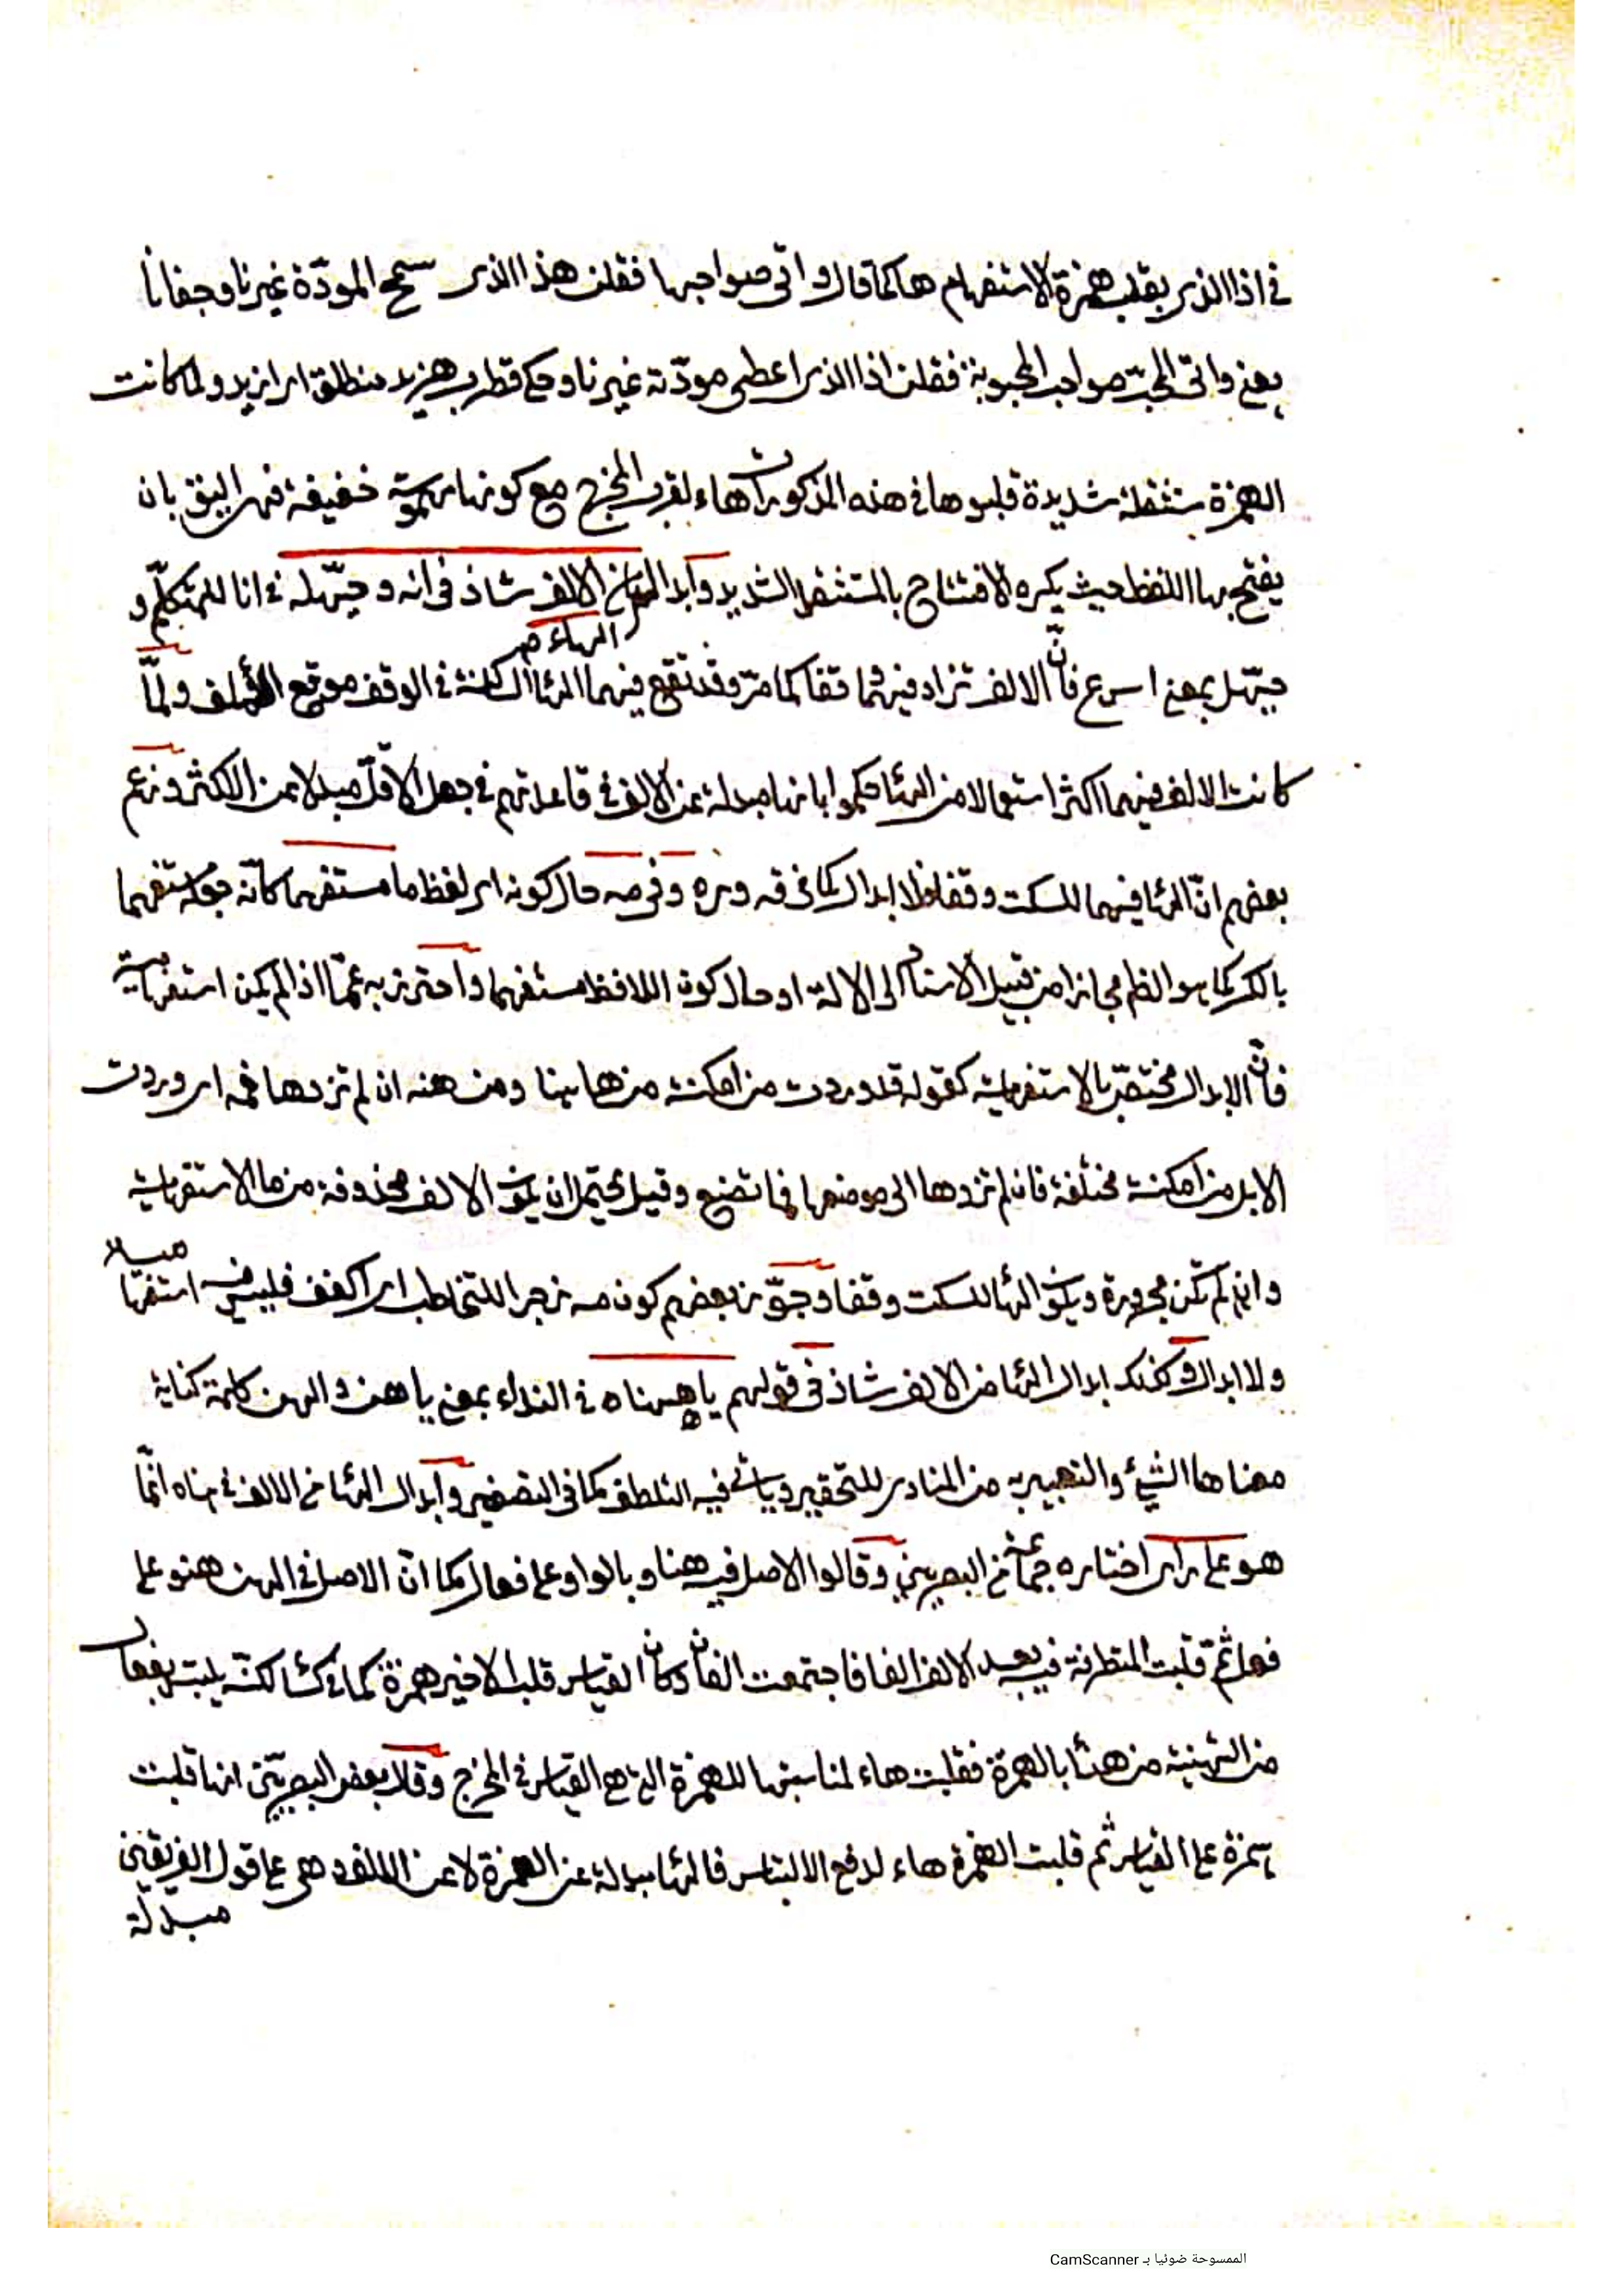 في اذا الذي بقلب همزة الاستفهام هاء كما قال واتى صواحبها فقلن هذا الذي سمح المودّة غيرنا وجفانا
يعني واتى المحبّ صواحب المحبوبة فقلن اذا الذي اعطى مودّته غيرنا وحكى قطرب هزيد منطلق اي ازيد ولما كانت
الهمزة مستثقلة شديدة قلبوها في هذه المذكورات هاء لقرب المخرج مع كونها مهموسة خفيفة فهي اليق بان
يفتتح بها اللفظ حيث يكره الافتتاح بالمستثقل الشديد وابدال الهاء من الالف شاذ في انه وحيّهله في انا للمتكلّم و
الهاء
حيّهل بمعنى اسرع فانّ الالف تزاد فيهما وقفا كما مرّ وقد تقع فيهما الهاء الساكنة في الوقف موقع الالف ولمّا
كانت الالف فيهما اكثر استعمالا من الهاء حكموا بانها مبدلة عن الالف في قاعدتهم في جعل الاقلّ مبدلا من الاكثر وزعم
بعضهم انّ الهاء فيهما للسكت وقفا ولا ابدال كما في قه وره وفي مه حال كونه اي لفظ ما مستفهما كانّه جعله مستفهما
بالكسر كما هو الظاهر مجازا من قبيل الاسناد الى الالة او حال كون اللافظ مستفهما واحترز به عمّا اذا لم يكن استفهامية
فانّ الابدال مختصّ بالاستفهامية كقوله قد وردت من امكنه من هاهنا ومن هنه ان لم تروها فمه اي وردت
الابل من امكنة مختلفة فان لم تروها الى موضعها فما تصنع وقيل يحتمل ان يكون الالف محذوفة من ما الاستفهامية
وان لم تكن مجرورة ويكون الهاء للسكت وقفا وجوّز بعضهم كون مه زجرا للمخاطب اي اكفف فليس فيه استفها
ولا ابدال وكذلك ابدال الهاء من الالف شاذ في قولهم يا هناه في النداء بمعنى يا هن والهن كلمة كناية
معناها الشيء والتعبير به من المنادي للتحقير وياتي فيه التلطف كما في التصغير وابدال الهاء من الالف في هناه انّما
هو على راي اختاره جماعة من البصريين وقالوا الاصل فيه هناو بالواو على فعال كما انّ الاصل في الهن هنو على
فعل ثمّ قلبت المتطرفة فيه بعد الالف الفا فاجتمعت الفان وكان القياس قلب الاخير همزة كما في كساء لكنّه يلتبس بفعال
من التهنية من هنأ بالهمزة فقلبت هاء لمناسبتها للهمزة التي هي القياس في المخرج وقال بعض البصريّين انها قلبت
همزة على القياس ثم قلبت الهمزة هاء لدفع الالتباس فالهاء مبدلة عن الهمزة لا عن الالف وهي على قول الفريقين
مبدلة
الممسوحة ضوئيا بـ CamScanner